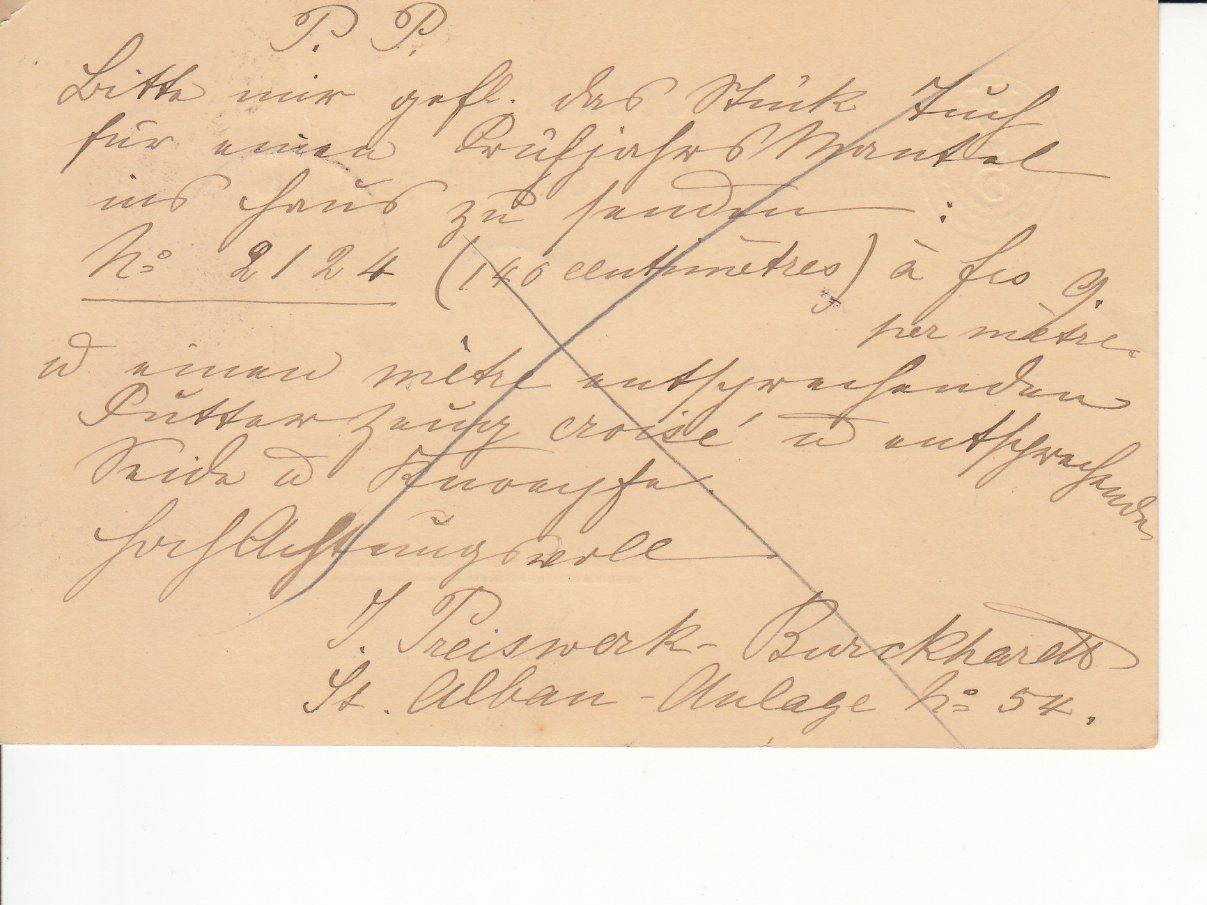 P. P.
Bitte mir gefl. das Stück Tuch
für einen Frühjahrs Mantel
ins Haus zu senden :
No 2124 (140 centimètres) à frs 9.
per mètre.
u einen mètre entsprechenden
Futterzeug croisé u entsprechende
Seide u Knoepfe.
HochAchtungsvoll
J. Preiswerk-Burckhardt
St. Alban-Anlage No 54.